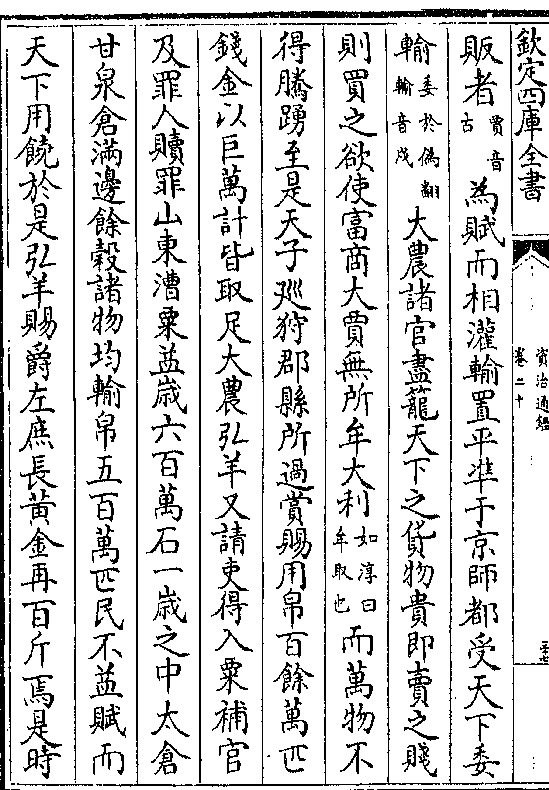 欽定四庫全書
資治通鑑
卷二十
販者賈音古為賦而相灌輸置平凖于京師都受天下委
輸委於偽翻輸音戍大農諸官盡籠天下之貨物貴即賣之賤
則買之欲使富商大賈無所牟大利如淳曰牟取也而萬物不
得騰踴至是天子廵狩郡縣所過賞賜用帛百餘萬匹
錢金以巨萬計皆取足大農弘羊又請吏得入粟補官
及罪人贖罪山東漕粟益歲六百萬石一歲之中太倉
甘泉倉滿邊餘榖諸物均輸帛五百萬匹民不益賦而
天下用饒於是弘羊賜爵左庶長黃金再百斤焉是時